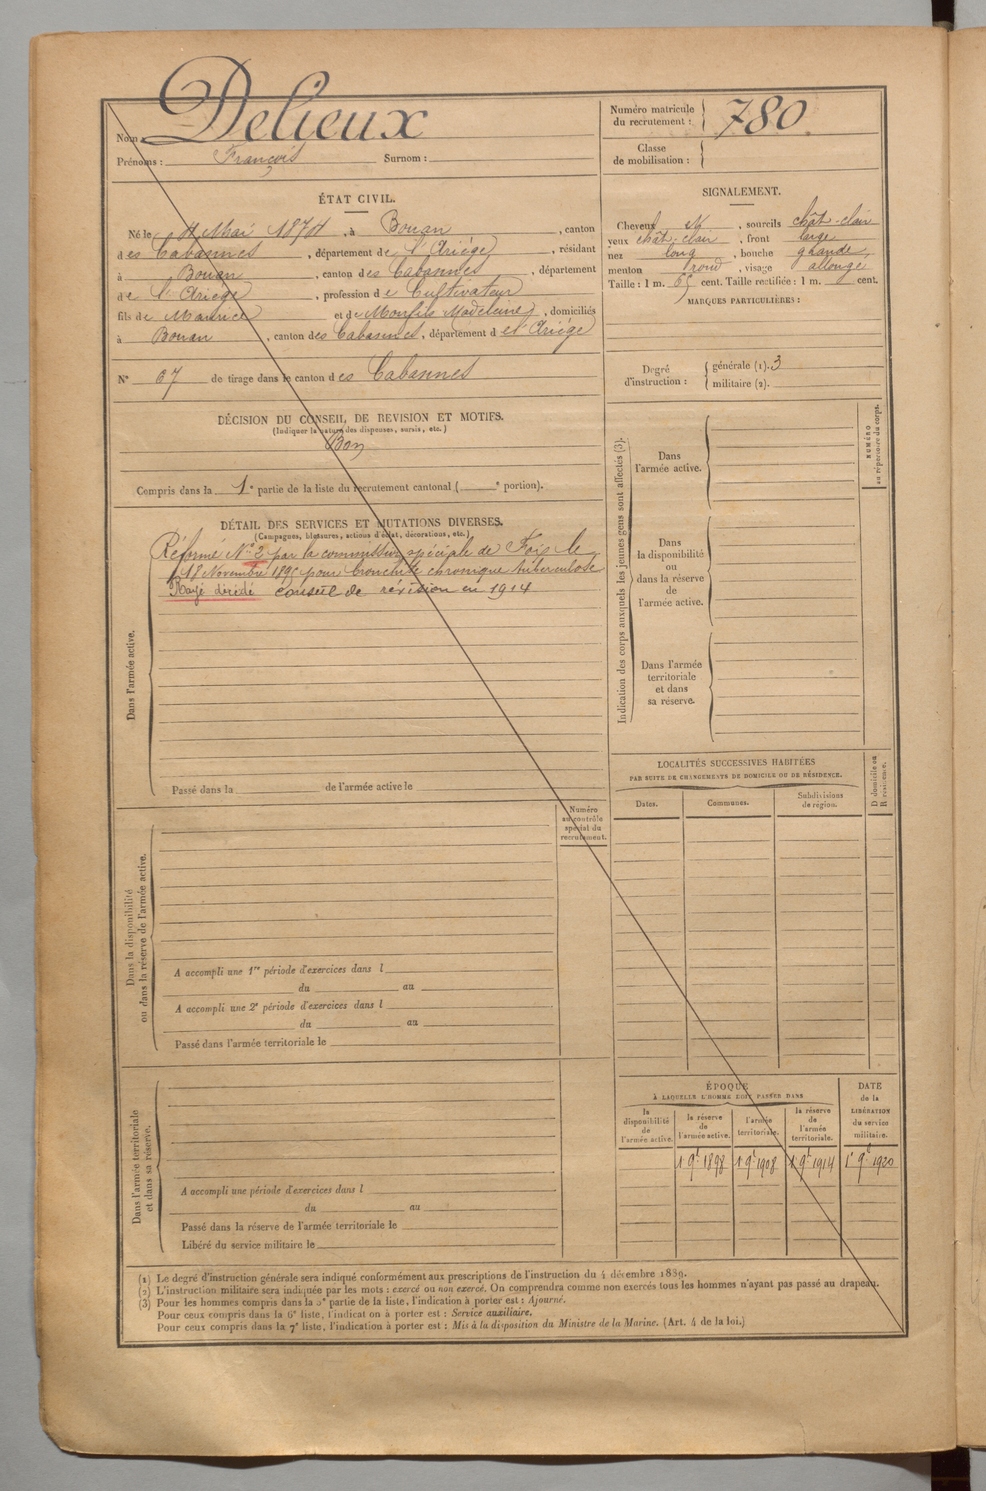 Nom : Delieux
Prénoms : François Surnom :
Numéro matricule du recrutement : 780
Classe de mobilisation :
ÉTAT CIVIL.
Né le Mai 1874, à Bouan, canton
des Cabannes, département de l'Ariège, résidant
à Bouan, canton des Cabannes, département
de l'Ariège, profession de Cultivateur
fils de Maurice et de Monfils Madeleine, domiciliés
à Bouan, canton des Cabannes, département de l'Ariège
N° 67 de tirage dans le canton des Cabannes
SIGNALEMENT.
Cheveux , sourcils chât-clair
yeux chât-clair, front large
nez long, bouche grande,
menton rond, visage allongé
Taille : 1 m. 65 cent. Taille rectifiée : 1 m. cent.
MARQUES PARTICULIÈRES :
Degré d'instruction : générale (1). 3
militaire (2).
DÉCISION DU CONSEIL DE REVISION ET MOTIFS.
(Indiquer la nature des dispenses, sursis, etc.)
Bon
Compris dans la 1e partie de la liste du recrutement cantonal ( e portion).
DÉTAIL DES SERVICES ET MUTATIONS DIVERSES.
(Campagnes, blessures, actions d'éclat, décorations, etc.)
Réformé N° 2 par la commission spéciale de Foix le
18 Novembre 1895 pour bronchite chronique tuberculose
Rayé décédé conseil de révision en 1914
Dans l'armée active.
Passé dans la de l'armée active le
Numéro au contrôle spécial du recrutement.
Dans la disponibilité ou dans la réserve de l'armée active.
A accompli une 1re période d'exercices dans l
du au
A accompli une 2e période d'exercices dans l
du au
Passé dans l'armée territoriale le
Dans l'armée territoriale et dans sa réserve.
A accompli une période d'exercices dans l
du au
Passé dans la réserve de l'armée territoriale le
Libéré du service militaire le
Indication des corps auxquels les jeunes gens sont affectés (3).
Dans l'armée active.
Dans la disponibilité ou dans la réserve de l'armée active.
Dans l'armée territoriale et dans sa réserve.
NUMÉRO au répertoire du corps.
LOCALITÉS SUCCESSIVES HABITÉES
PAR SUITE DE CHANGEMENTS DE DOMICILE OU DE RÉSIDENCE.
Dates. Communes. Subdivisions de région. D domicile ou R résidence.
ÉPOQUE
À LAQUELLE L'HOMME DOIT PASSER DANS
la disponibilité de l'armée active. la réserve de l'armée active. l'armée territoriale. la réserve de l'armée territoriale.
DATE de la LIBÉRATION du service militaire.
1 9e 1898 1 9e 1908 1 9e 1914 1 9e 1920
(1) Le degré d'instruction générale sera indiqué conformément aux prescriptions de l'instruction du 4 décembre 1889.
(2) L'instruction militaire sera indiquée par les mots : exercé ou non exercé. On comprendra comme non exercés tous les hommes n'ayant pas passé au drapeau.
(3) Pour les hommes compris dans la 5e partie de la liste, l'indication à porter est : Ajourné.
Pour ceux compris dans la 6e liste, l'indication à porter est : Service auxiliaire.
Pour ceux compris dans la 7e liste, l'indication à porter est : Mis à la disposition du Ministre de la Marine. (Art. 4 de la loi.)